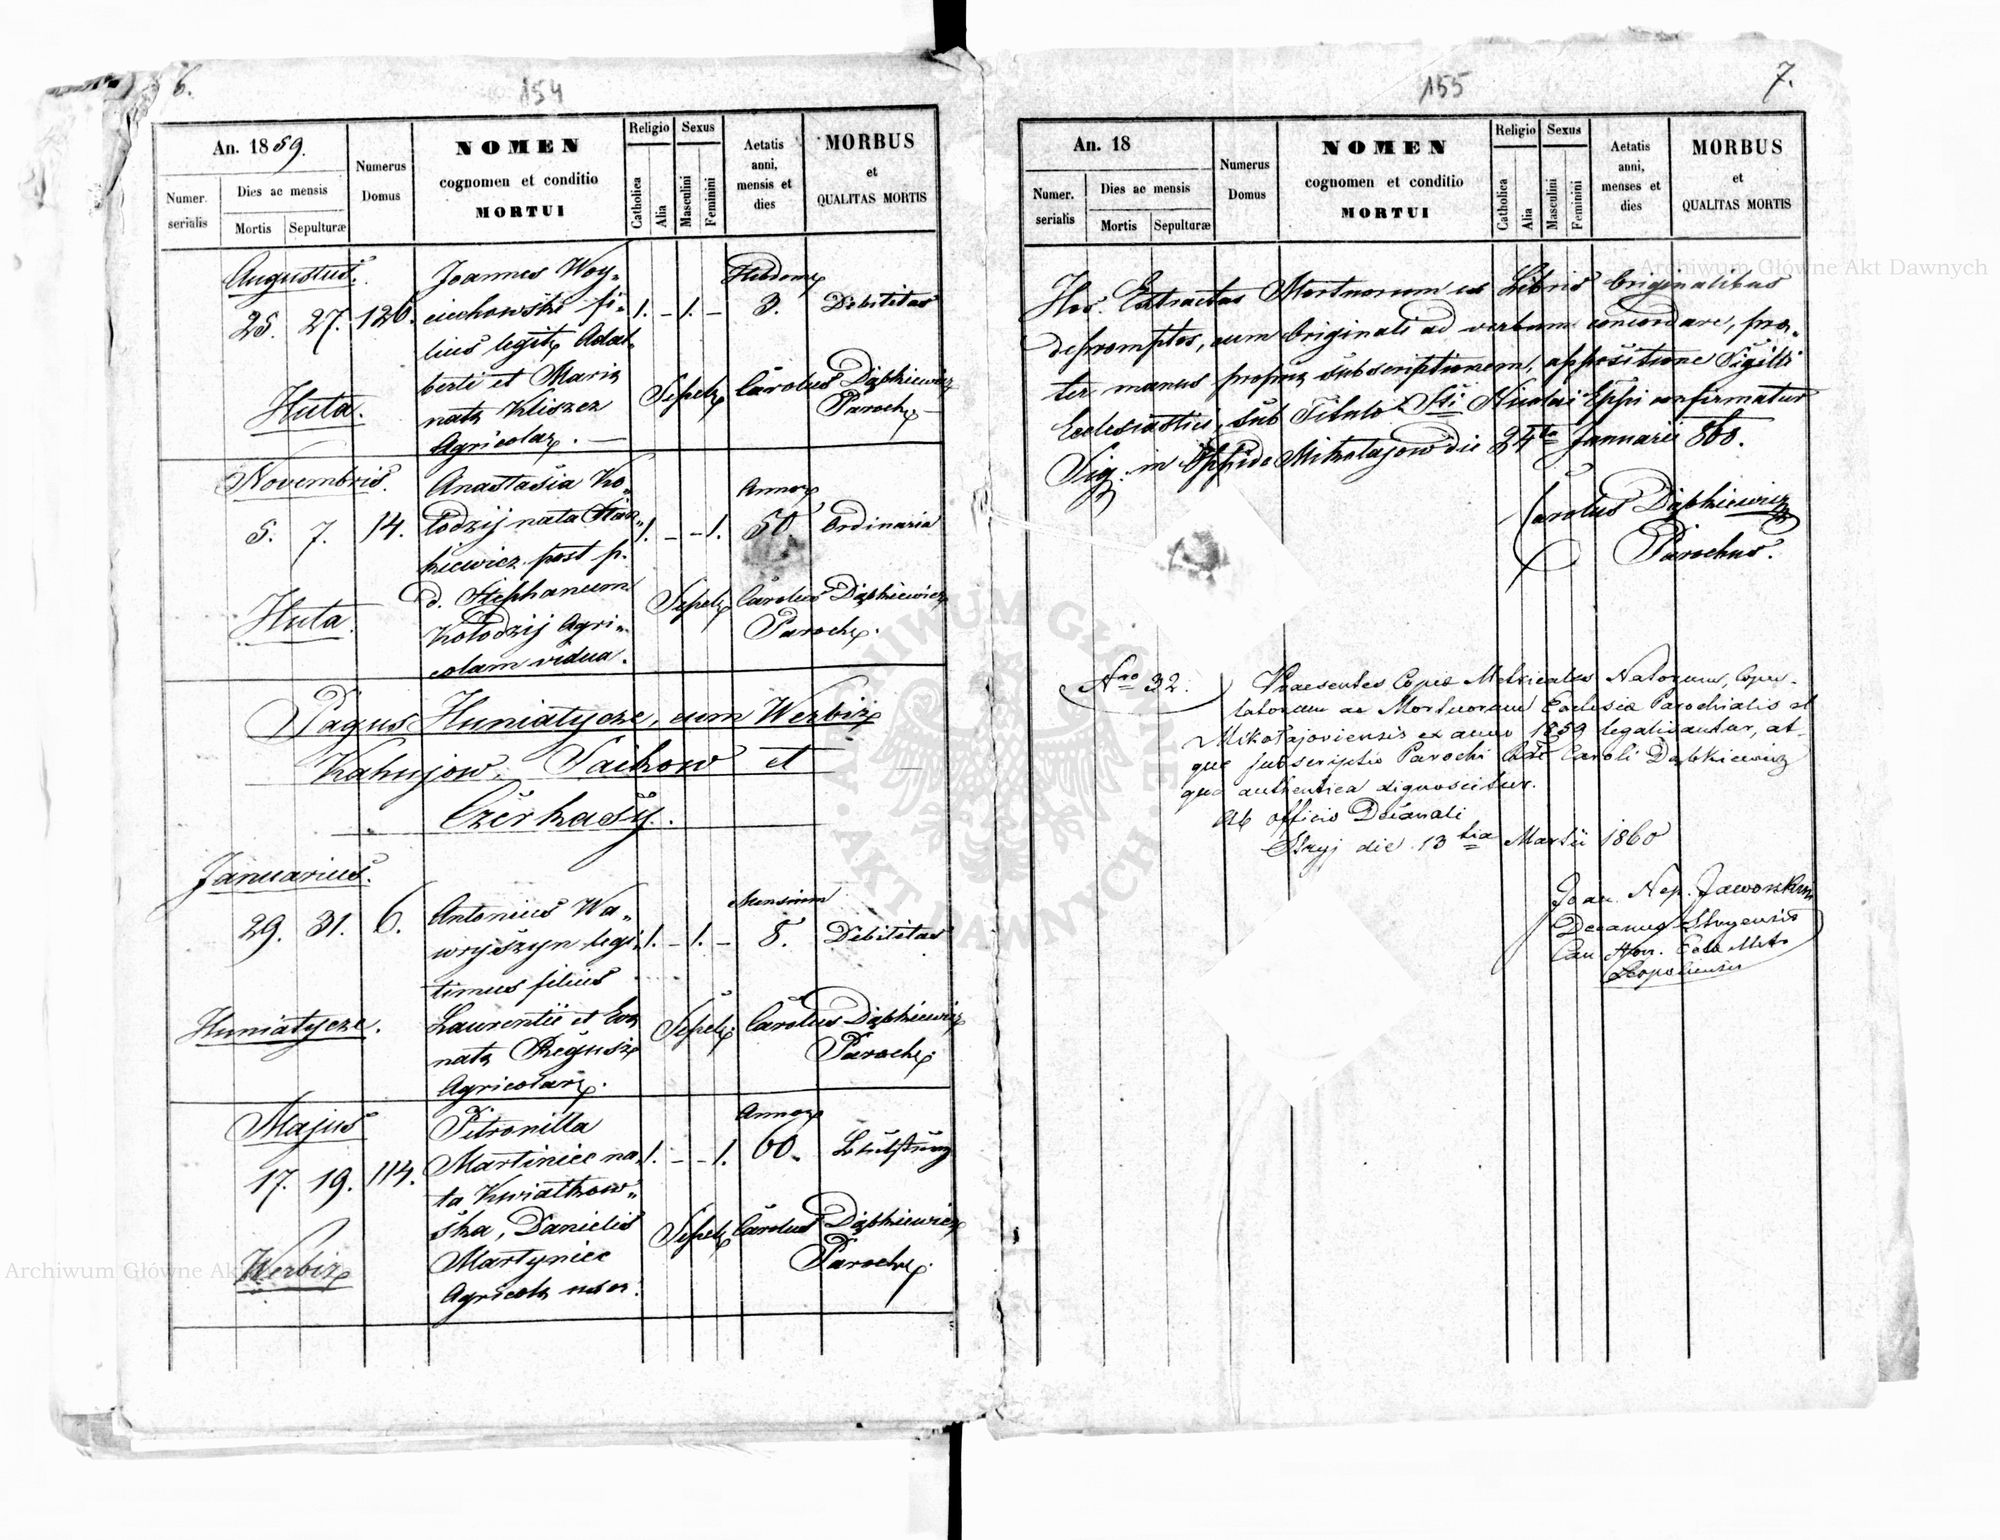 6.
154
An. 1859.
Numer. serialis
Dies ac mensis
Mortis
Sepulturæ
Numerus Domus
NOMEN
cognomen et conditio
MORTUI
Religio
Catholica
Alia
Sexus
Masculini
Feminini
Aetatis anni, mensis et dies
MORBUS
et
QUALITAS MORTIS
Augustus.
25. 27. 126.
Joannes Woy„
ciechowski fi„
lius legit. Adal„
berti et Maria
nata Kliszcz
Agricolar. —
1. – 1. –
Hebdom.
3. Debilitas
Huta.
Sepel. Carolus Dąbkiewicz
Paroch.
Novembris.
5. 7. 14.
Anastasia Ko„
łodzij nata
kiewicz post p.
d. Stephanum
Kołodzij Agri„
colam vidua.
1. – – 1.
Annor.
50. Ordinaria
Huta.
Sepel. Carolus Dąbkiewicz
Paroch.
Pagus Huniatycze, cum Werbiż
Kahujow, Saikow et
Czerkasy.
Januarius.
29. 31. 6.
Antonius Wa„
wryszyn legi„
timus filius
Laurentii et Eva
nata
Agricolar.
1. – 1. –
Mensium
8. Debilitas
Huniatycze.
Sepel. Carolus Dąbkiewicz
Paroch.
Majus
17. 19. 114.
Petronilla
Martiniec na„
ta Kwiatkow„
ska, Danielis
Martyniec
Agricola uxor.
1. – – 1.
Annor.
60.
Werbiż
Sepel. Carolus Dąbkiewicz
Paroch.
155
7.
An. 18
Numer. serialis
Dies ac mensis
Mortis
Sepulturæ
Numerus Domus
NOMEN
cognomen et conditio
MORTUI
Religio
Catholica
Alia
Sexus
Masculini
Feminini
Aetatis anni, menses et dies
MORBUS
et
QUALITAS MORTIS
Hos Extractus Mortuorum ex Libris Originalibus
depromptos, cum Originali ad verbum concordare, prae„
ter manus propria subscriptionem, appositione Sigilli
Ecclesiastici, sub Titulo Sti Nicolai Eppi confirmatur
Sig. in Oppido Mikołajow die 24ta Januarii 860.
Carolus Dąbkiewicz
Parochus.
Nro 32.
Praesentes Copia Metricales Natorum, Copu„
latorum ac Mortuorum Ecclesia Parochialis
Mikołajoviensis ex anno 1859 legalisantur, at„
que subscriptio Parochi Caroli Dąbkiewicz
qua authentica dignoscitur.
Ab officio Decanali
Stryj die 13tia Martii 1860
Joan. Nep. Jaworski
Decanus Stryensis
Can Hon. Metr.
Leopoliensis
Archiwum Główne Akt Dawnych
Archiwum Główne Akt Dawnych
ARCHIWUM GŁÓWNE AKT DAWNYCH